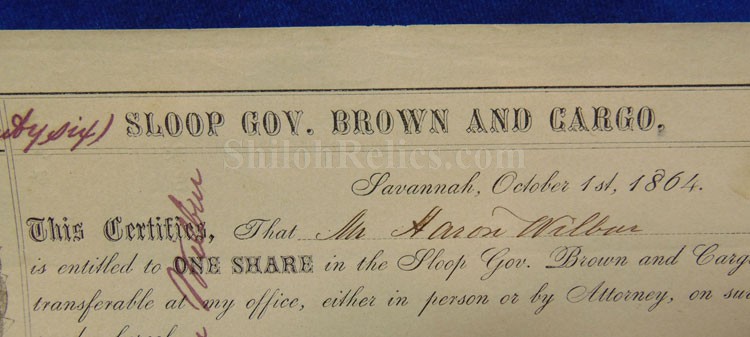 SLOOP GOV. BROWN AND CARGO,
ShilohRelics.com
Savannah, October 1st, 1864.
This Certifies, That Mr Aaron Wilbur
is entitled to ONE SHARE in the Sloop Gov. Brown and Carg
transferable at my office, either in person or by Attorney, on sur